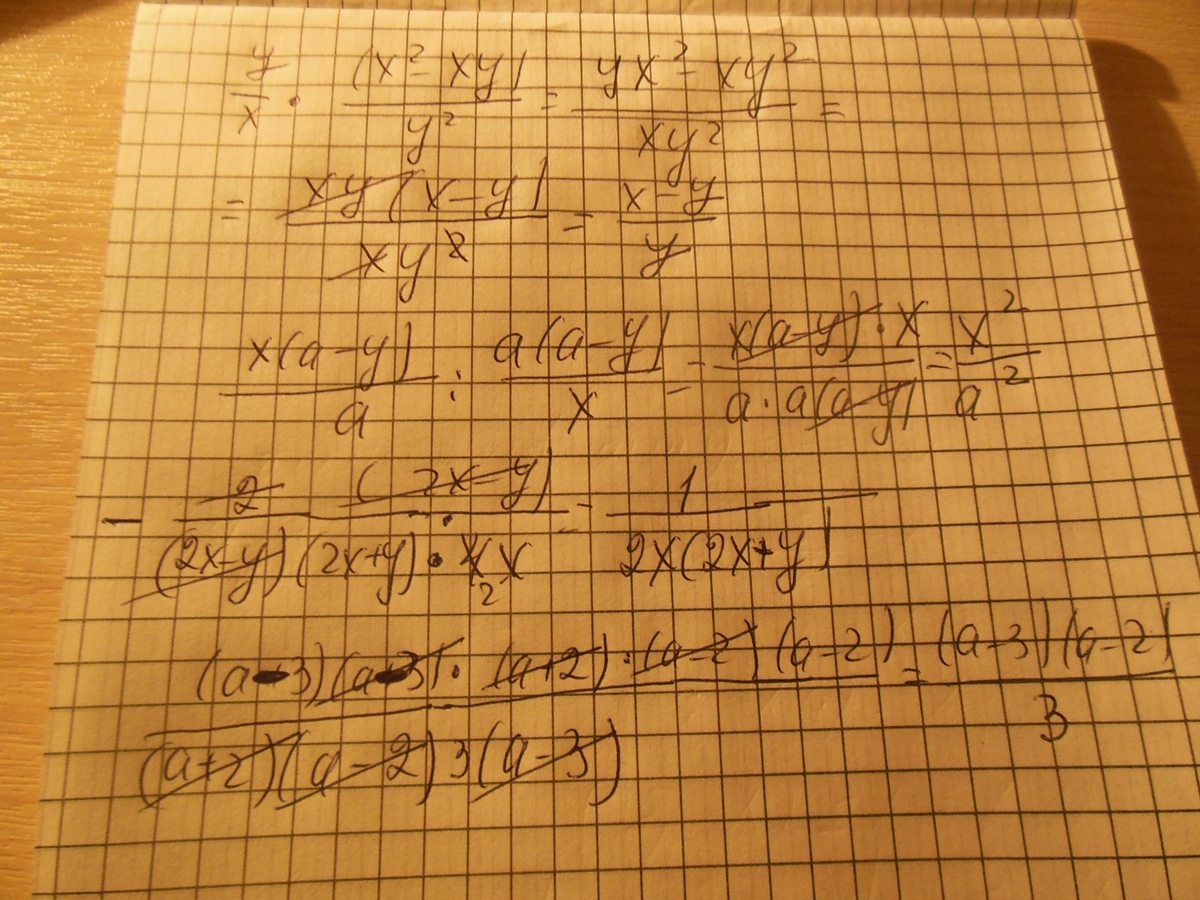 y/x · (x² - xy)/y² = (yx² - xy²)/(xy²) =
= (xy(x-y))/(xy²) = (x-y)/y
(x(a-y))/a : (a(a-y))/x = (x(a-y)·x)/(a·a(a-y)) = x²/a²
- (2 (2x-y))/((2x-y)(2x+y)·4x x) = - 1/(2x(2x+y))
((a-3)(a-3)·(a+2)·(a-2)(a-2))/((a+2)(a-2)3(a-3)) = ((a-3)(a-2))/3